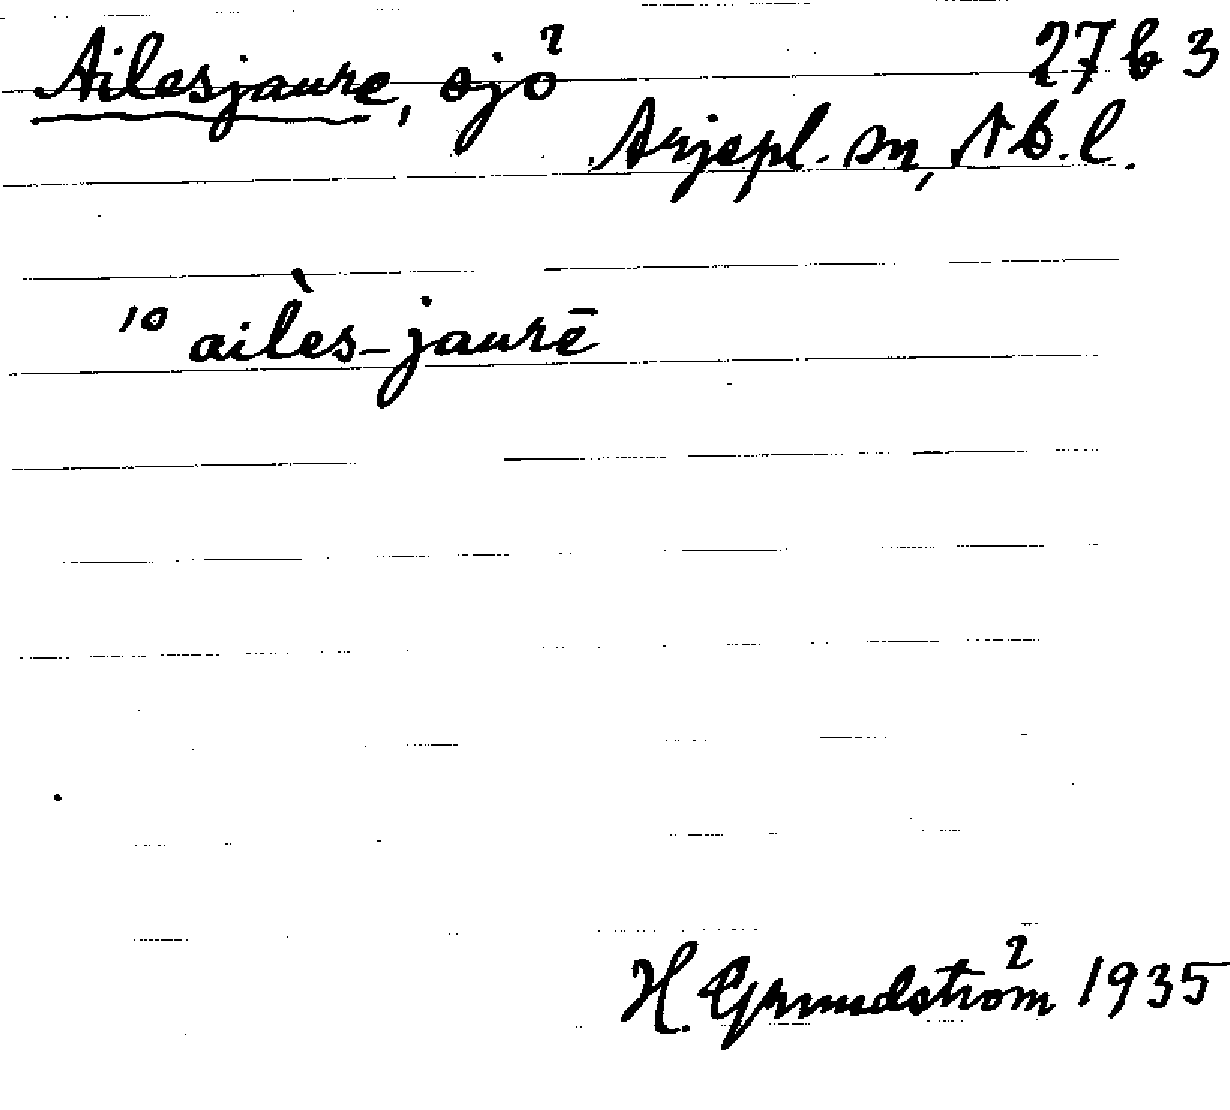 Ailesjaure, sjö 27 b 3
Arjepl. sn, Nb. l.
10 ailès-jaurē
H. Grundström 1935